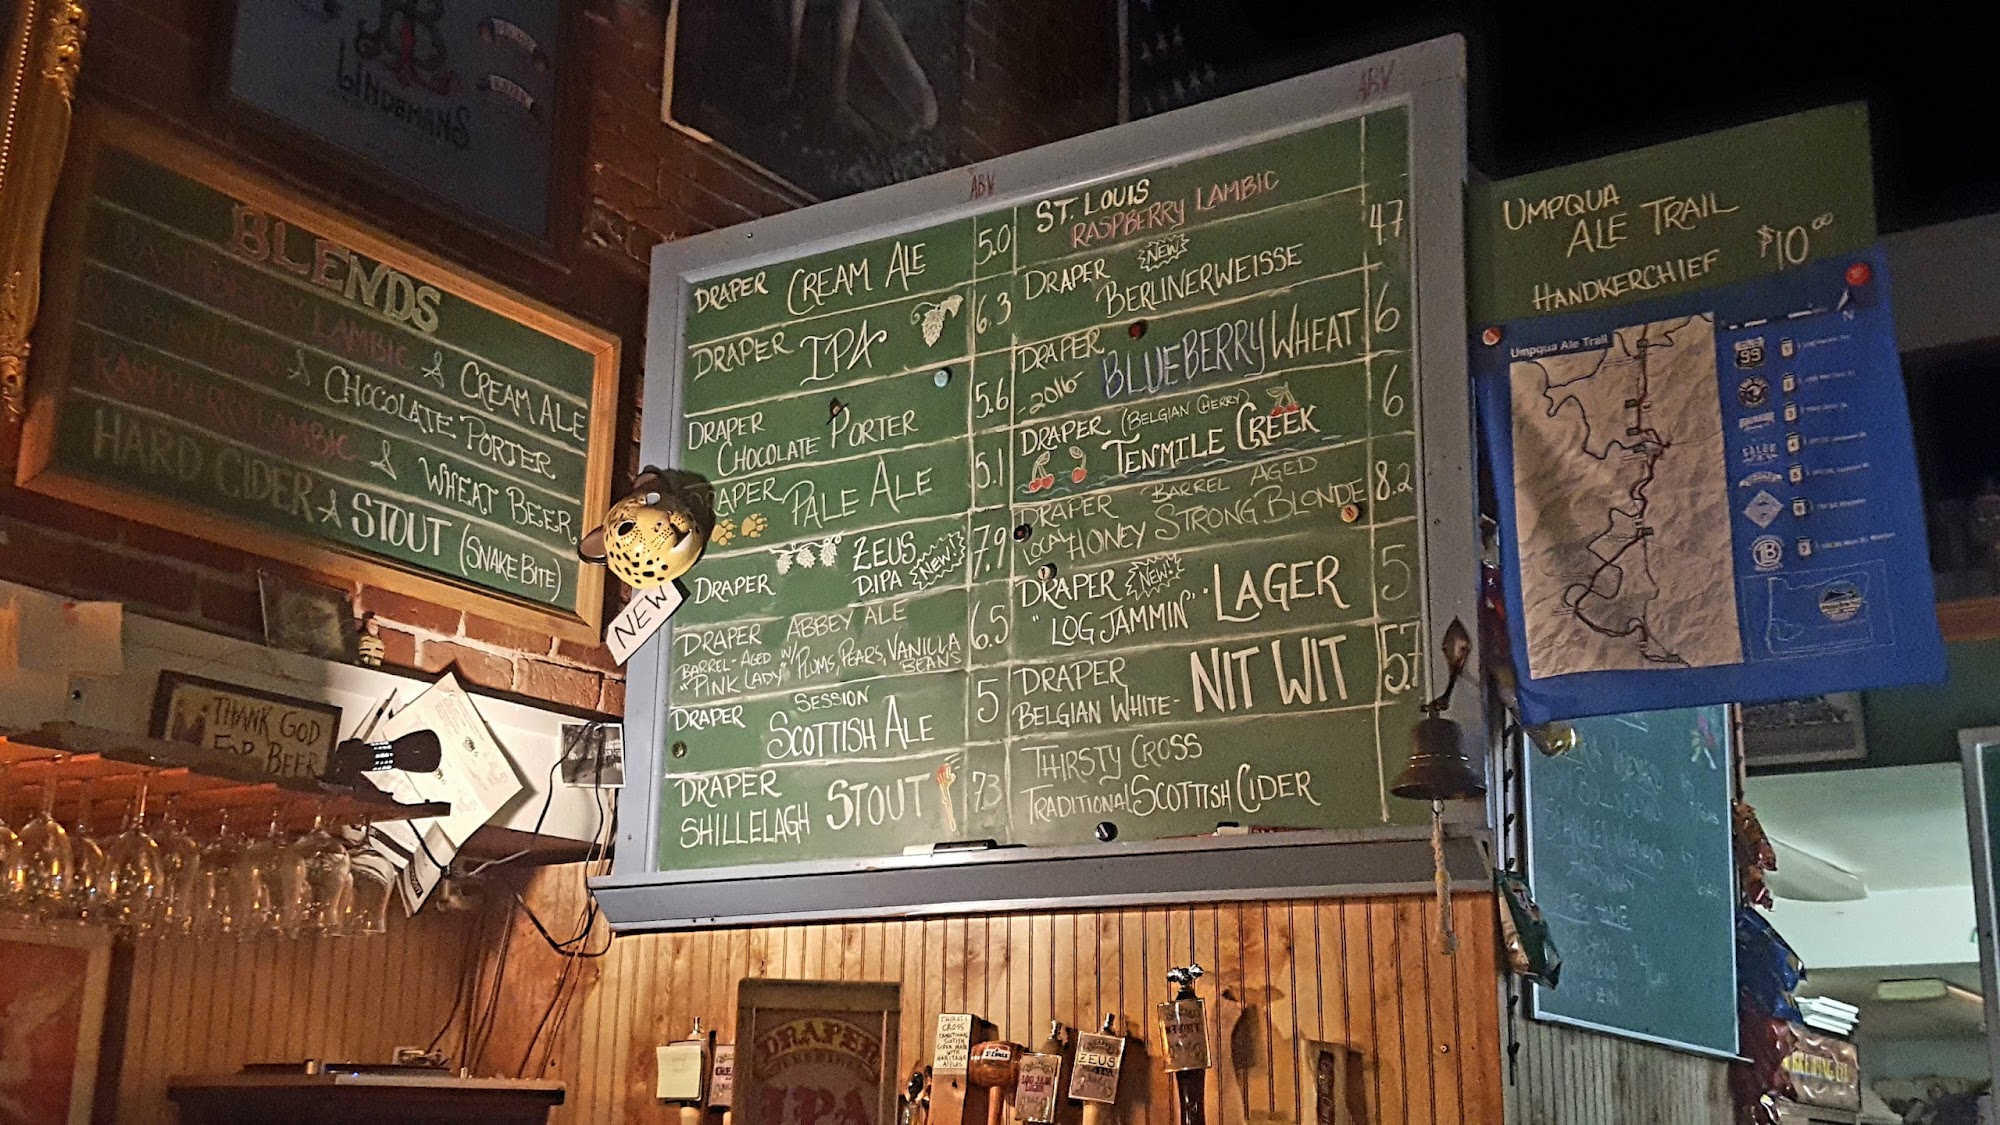 BLENDS
RASPBERRY LAMBIC & CREAM ALE
LAMBIC & CHOCOLATE PORTER
LAMBIC & WHEAT BEER
HARD CIDER & STOUT (SNAKE BITE)
THANK GOD
FOR BEER
NEW
ABV
DRAPER CREAM ALE 5.0
DRAPER IPA 6.3
DRAPER CHOCOLATE PORTER 5.6
DRAPER PALE ALE 5.1
DRAPER ZEUS DIPA NEW! 7.9
DRAPER ABBEY ALE 6.5
BARREL-AGED W/ PLUMS, PEARS, VANILLA BEANS
"PINK LADY"
DRAPER SESSION SCOTTISH ALE 5
DRAPER SHILLELAGH STOUT 7.3
ABV
ST. LOUIS
RASPBERRY LAMBIC
DRAPER NEW! BERLINERWEISSE 4.7
DRAPER -2016- BLUEBERRY WHEAT 6
DRAPER (BELGIAN CHERRY) TENMILE CREEK 6
DRAPER BARREL AGED
LOCAL HONEY STRONG BLONDE 8.2
DRAPER NEW! "LOG JAMMIN'" LAGER 5
DRAPER BELGIAN WHITE- NIT WIT 5.7
THIRSTY CROSS
TRADITIONAL SCOTTISH CIDER
UMPQUA
ALE TRAIL
HANDKERCHIEF $10.00
Umpqua Ale Trail
N
99
DRAPER
IPA
THIRSTY
CROSS
TRADITIONAL
SCOTTISH
CIDER MADE
WITH
HERITAGE
APPLES
ST. LOUIS
LOG JAM
ZEUS
BREWING CO